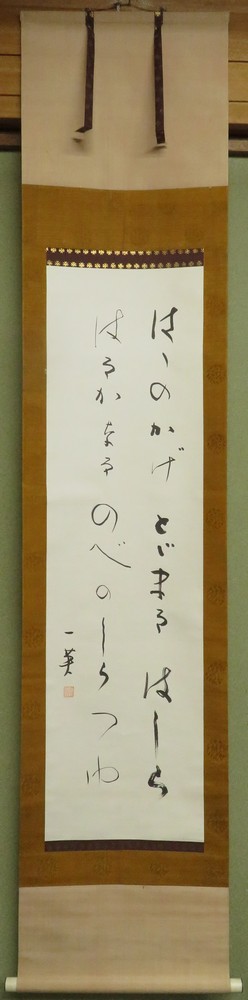 はゝのかげとゞまるはしら
はるかなるのべのしらつゆ
一英